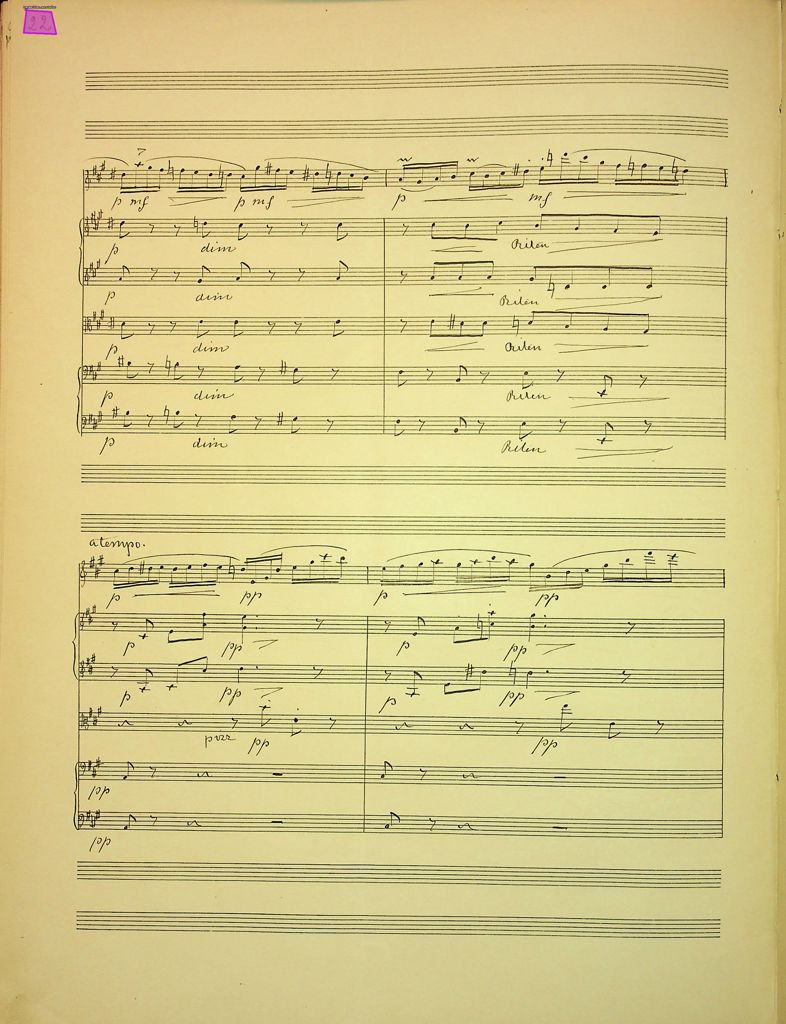 22
p mf p mf p mf
p dim Riten
p dim Riten
p dim Riten
p dim Riten
p dim Riten
a tempo.
p pp p pp
p pp p pp
p pp p pp
pizz pp pp
pp
pp